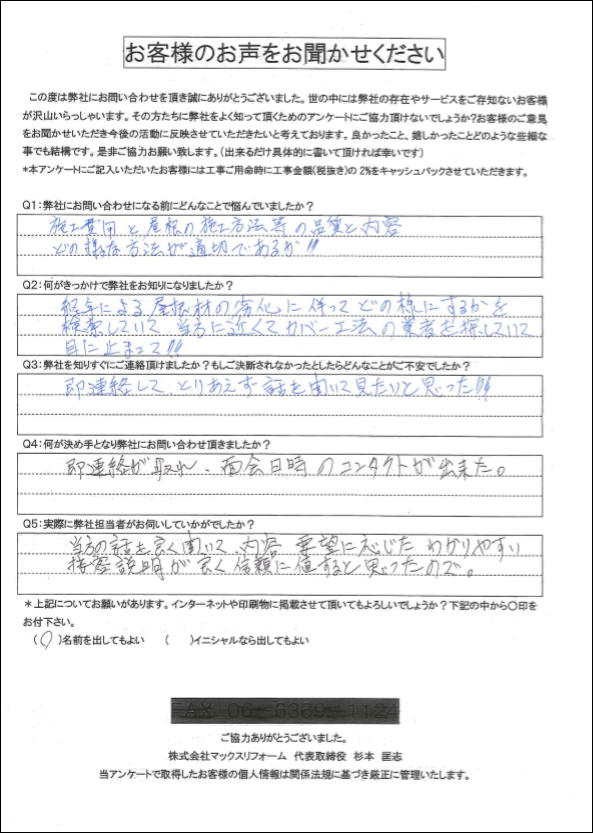 お客様のお声をお聞かせください
この度は弊社にお問い合わせを頂き誠にありがとうございました。世の中には弊社の存在やサービスをご存知ないお客様
が沢山いらっしゃいます。その方たちに弊社をよく知って頂くためのアンケートにご協力頂けないでしょうか?お客様のご意見
をお聞かせいただき今後の活動に反映させていただきたいと考えております。良かったこと、嬉しかったことどのような些細な
事でも結構です。是非ご協力お願い致します。(出来るだけ具体的に書いて頂ければ幸いです)
*本アンケートにご記入いただいたお客様には工事ご用命時に工事金額(税抜き)の 2%をキャッシュバックさせていただきます。
Q1:弊社にお問い合わせになる前にどんなことで悩んでいましたか?
施工費用と屋根の施工方法等の品質と内容
どの様な方法が適切であるか!!
Q2:何がきっかけで弊社をお知りになりましたか?
経年による屋根材の劣化に伴って どの様にするかを
検索していて、当方に近くてカバー工法の業者を探していて
目に止まって!!
Q3:弊社を知りすぐにご連絡頂けましたか?もしご決断されなかったとしたらどんなことがご不安でしたか?
即連絡して、とりあえず話を聞いて見たいと思った!!
Q4:何が決め手となり弊社にお問い合わせ頂きましたか?
即連絡が取れ、面会日時のコンタクトが出来た。
Q5:実際に弊社担当者がお伺いしていかがでしたか?
当方の話を良く聞いて、内容 要望に応じた わかりやすい
接客説明が良く信頼に値すると思ったので。
*上記についてお願いがあります。インターネットや印刷物に掲載させて頂いてもよろしいでしょうか?下記の中から○印を
お付下さい。
(○)名前を出してもよい ( )イニシャルなら出してもよい
FAX 06-6369-1124
ご協力ありがとうございました。
株式会社マックスリフォーム 代表取締役 杉本 匡志
当アンケートで取得したお客様の個人情報は関係法規に基づき厳正に管理いたします。